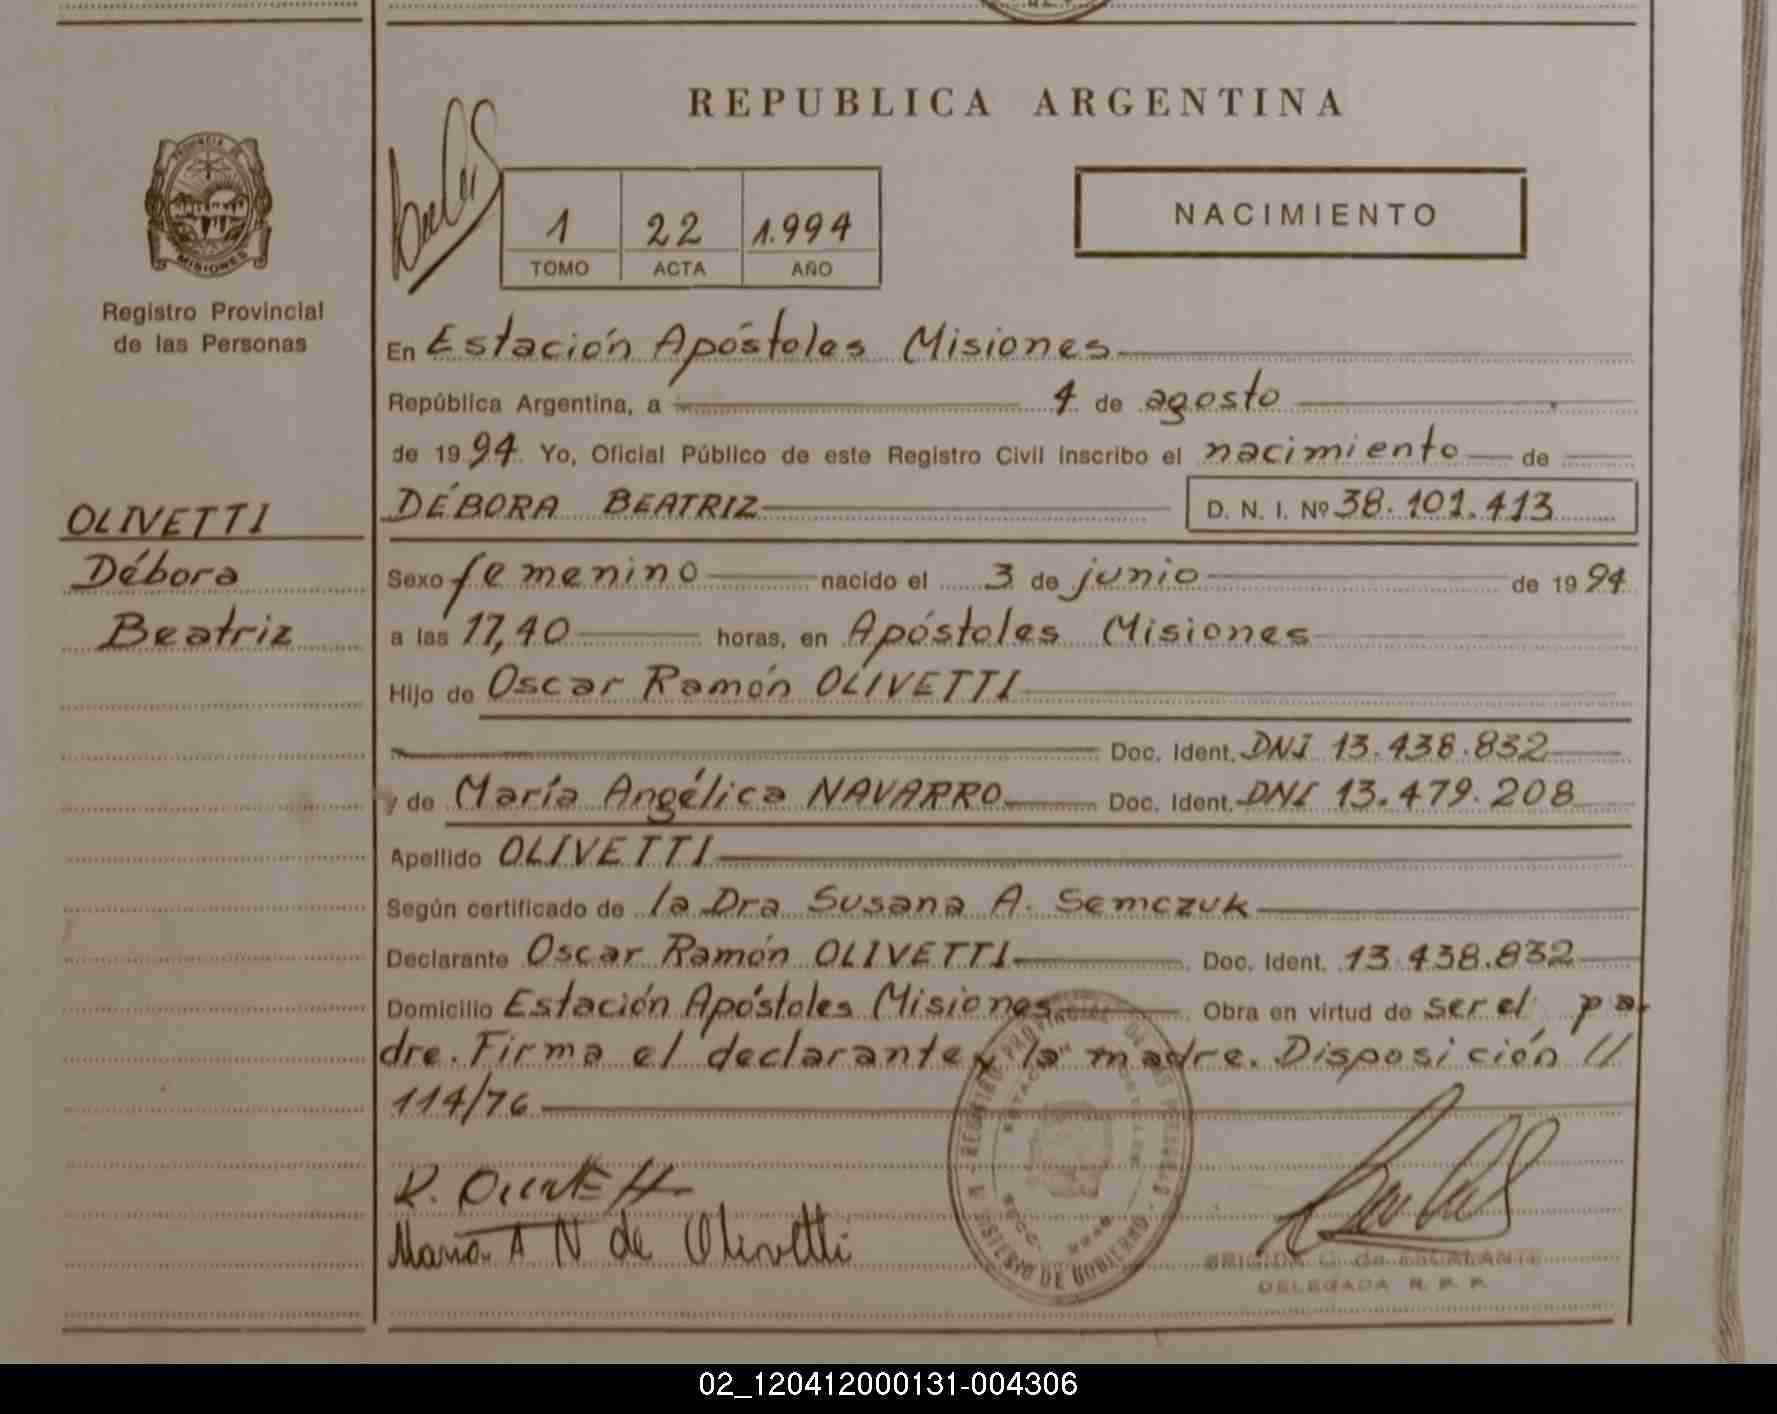 REPUBLICA ARGENTINA
PROVINCIA DE
MISIONES
Registro Provincial
de las Personas
1 22 1.994
TOMO ACTA AÑO
NACIMIENTO
En Estación Apóstoles Misiones
República Argentina, a 4 de agosto
de 1994. Yo, Oficial Público de este Registro Civil inscribo el nacimiento de
DÉBORA BEATRIZ D. N. I. Nº 38.101.413
OLIVETTI
Débora
Beatriz
Sexo femenino nacido el 3 de junio de 1994
a las 17,40 horas, en Apóstoles Misiones
Hijo de Oscar Ramón OLIVETTI
Doc. Ident. DNI 13.438.832
y de María Angélica NAVARRO Doc. Ident. DNI 13.479.208
Apellido OLIVETTI
Según certificado de la Dra Susana A. Semczuk
Declarante Oscar Ramón OLIVETTI Doc. Ident. 13.438.832
Domicilio Estación Apóstoles Misiones Obra en virtud de ser el pa-
dre. Firma el declarante y la madre. Disposición //
114/76
María A N de Olivetti
REGISTRO PROVINCIAL DE LAS PERSONAS
MINISTERIO DE GOBIERNO
BRIGIDA C. de ESCALANTE
DELEGADA R. P. P.
02_120412000131-004306